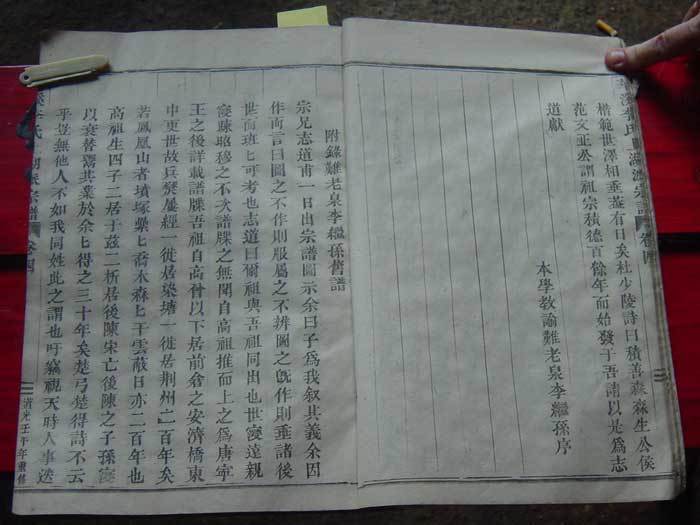 李氏
宗譜
卷四
楷範世澤相垂益有日矣杜少陵詩曰積善森森生公侯
范文正公謂祖宗積德百餘年而始發于吾請以是為志
道獻
本學教諭難老泉李繼孫序
附錄難老泉李繼孫舊譜
宗兄志道甫一日出宗譜圖示余曰子為我叙其義余因
作而言曰圖之不作則服屬之不辨圖之旣作則垂諸後
世而班匕可考也志道曰爾祖與吾祖同出也世寖遠親
寖疎昭穆之不次譜牒之無聞自高祖推而上之為唐寧
王之後詳載譜牒吾祖自高曾以下居前倉之安濟橋東
中更世故兵燹屢經一徙居染塘一徙居荆州二百年矣
若鳳凰山者墳塚纍匕喬木森匕干雲蔽日亦二百年也
高祖生四子二居于兹二析居後陳宋亡後陳之子孫寖
以衰替鬻其業於余匕得之三十年矣楚弓楚得詩不云
乎豈無他人不如我同姓此之謂也吁竊視天時人事迭
宗譜 卷四
道光壬午年重修